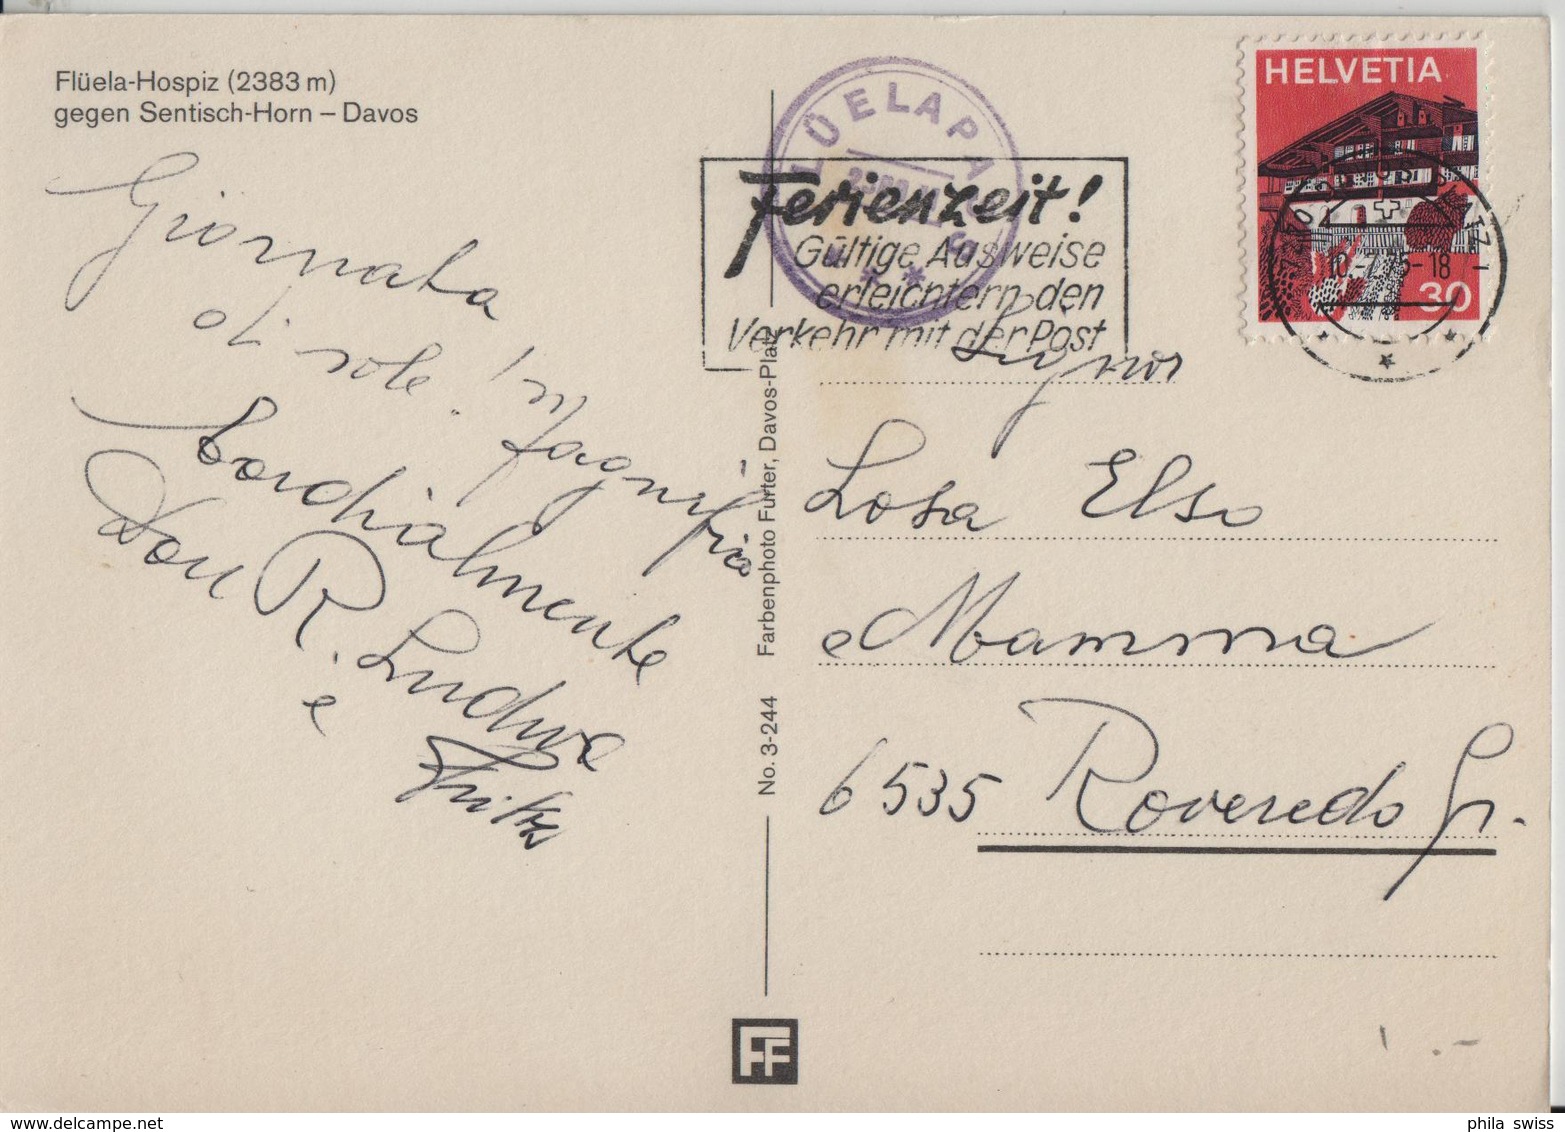 Flüela-Hospiz (2383 m)
gegen Sentisch-Horn – Davos
Giornata
di sole! Magnifica
Cordialmente
Don R. Ludwa
e
Fritz
Farbenphoto Furter, Davos-Platz
No. 3-244
FF
FLÜELAPASS
Ferienzeit!
Gültige Ausweise
erleichtern den
Verkehr mit der Post
HELVETIA
30
7270 DAVOS PLATZ
10-7 75-18
Signor
Losa Elso
e Mamma
6535 Roveredo Gr.
phila swiss